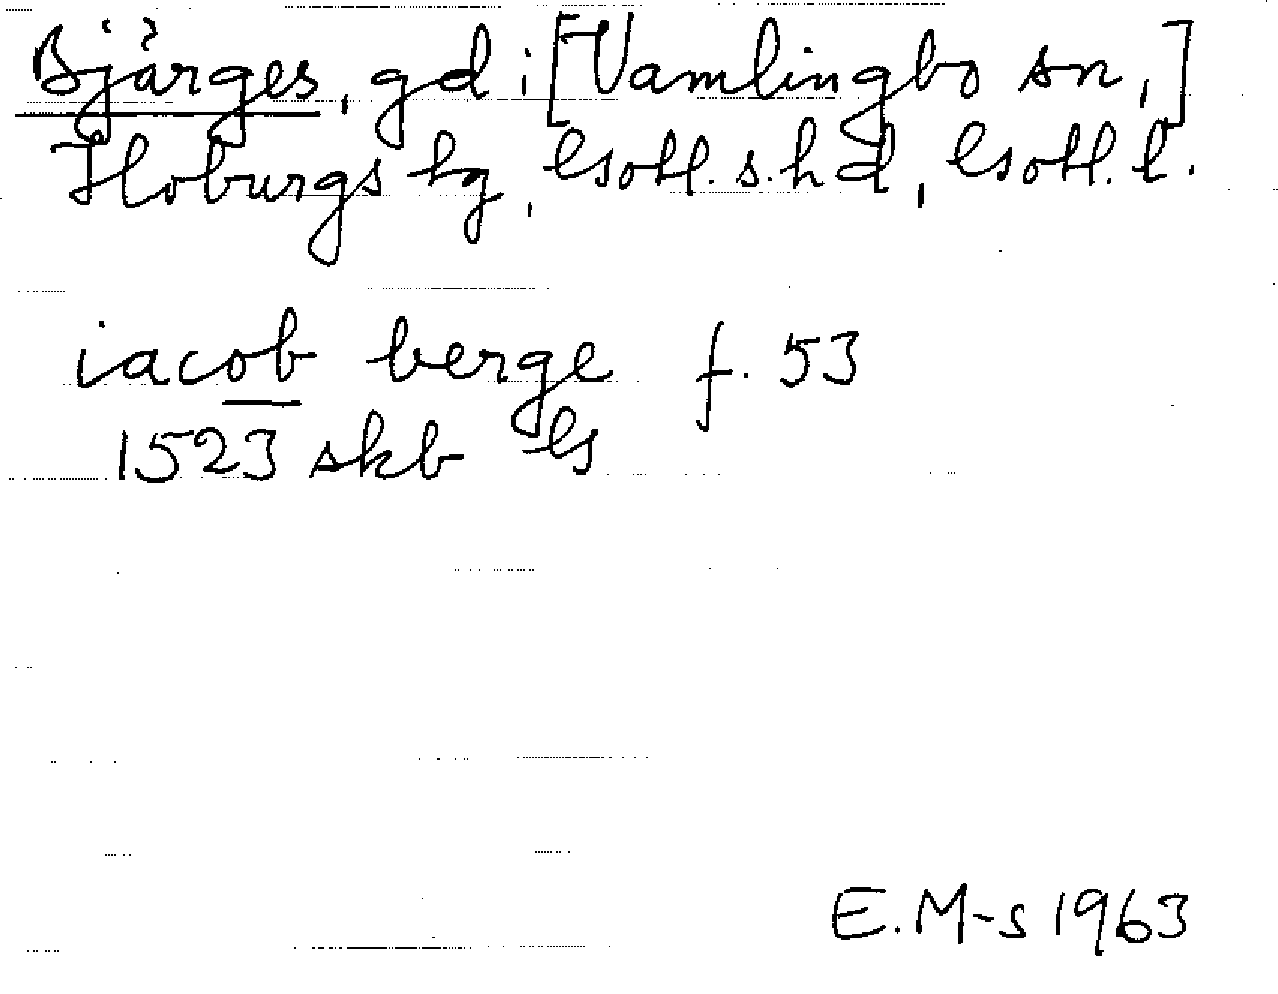 Bjärges, gd i [Vamlingbo sn,]
Hoburgs tg, Gotl. s. hd, Gotl. l.
iacob berge f. 53
1523 skb G
E. M-s 1963